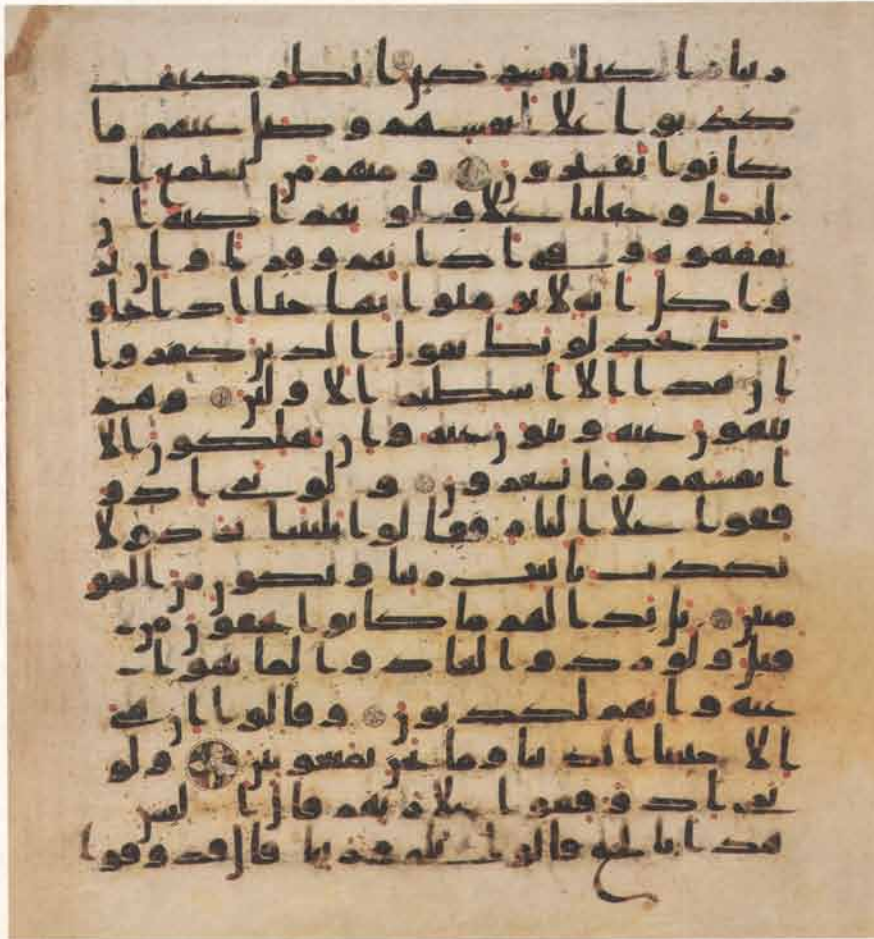 ربنا ما كنا مشركين انظر كيف
كذبوا علا انفسهم وضل عنهم ما
كانوا يفترون ومنهم من يستمع ا
ليك وجعلنا علا قلوبهم اكنة ان
يفقهوه وفي اذانهم وقرا وان ير
وا كل اية لا يومنوا بها حتا اذا جاو
ك يجدلونك يقول الذين كفروا
ان هذا الا اسطير الاولين وهم
ينهون عنه وينون عنه وان يهلكون الا
انفسهم وما يشعرون ولو ترى اذ و
قفوا علا النار فقالوا يليتنا نرد ولا
نكذب بايت ربنا ونكون من المو
منين بل بدا لهم ما كانوا يخفون من
قبل ولو ردوا لعادوا لما نهوا
عنه وانهم لكذبون وقالوا ان هي
الا حيتنا الدنيا وما نحن بمبعوثين ولو
ترى اذ وقفوا علا ربهم قال اليس
هذا بالحق قالوا بلى وربنا قال فذوقوا